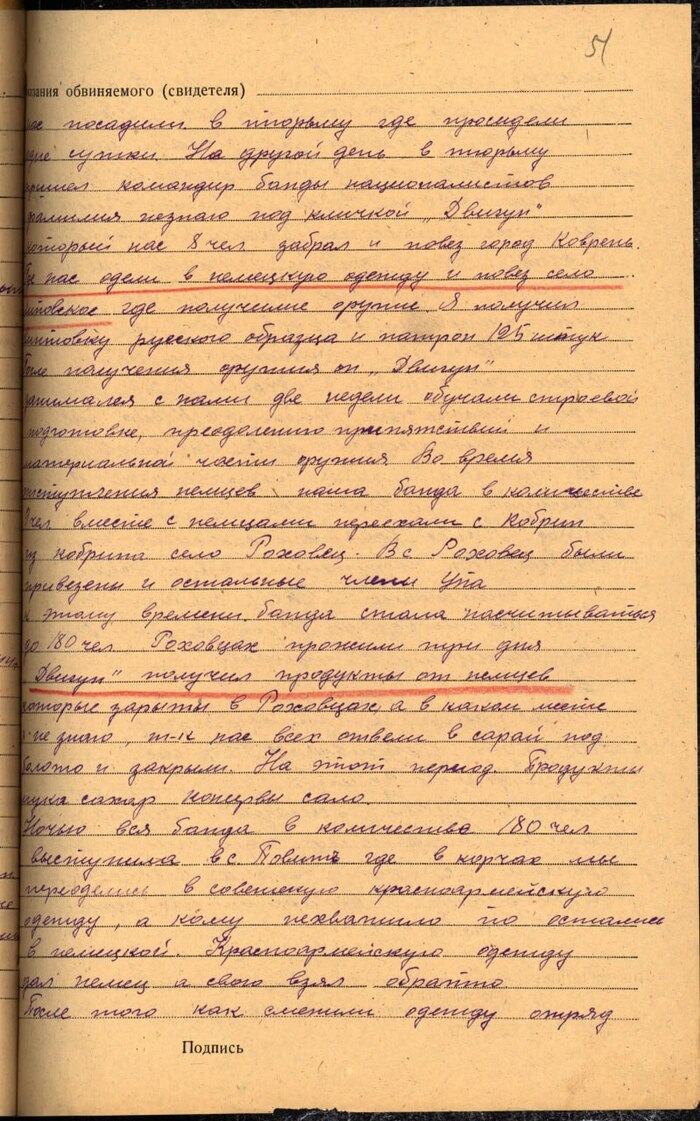 51
казания обвиняемого (свидетеля)
нас посадили в тюрьму где просидели
одне сутки. На другой день в тюрьму
пришел командир банды националистов
фамилия незнаю под кличкой „Двигун"
который нас 8 чел забрал и повез город Коврень.
где нас одели в немецкую одежду и повез село
где получилие оружие. Я получил
винтовку русского образца и патрон 125 штук
После получения оружия от „Двигун"
занимался с нами две недели обучали строевой
подготовке, преодолению припятствий и
материальной части оружия Во время
наступления немцев наша банда в количестве
чел вместе с немцами переехали с Кобрин
из кобрина село Роховец. В с Роховец были
привезены и остальные члены Упа
к этому времени банда стала насчитываться
до 180 чел Роховцах прожили три дня
„Двигун" получил продукты от немцев
которые зарыты в Роховцах, а в каком месте
я не знаю, т-к нас всех отвели в сарай под
болото и закрыли. На этот период. Продукты
мука сахар консервы сало.
Ночью вся банда в количества 180 чел
выступила в с. где в корчах мы
переоделись в советскую красноармейскую
одежду, а кому нехватило то остались
в немецкой. Красноармейскую одежду
дал немец а свою взял обратно
После того как сменили одежду отряд
Подпись